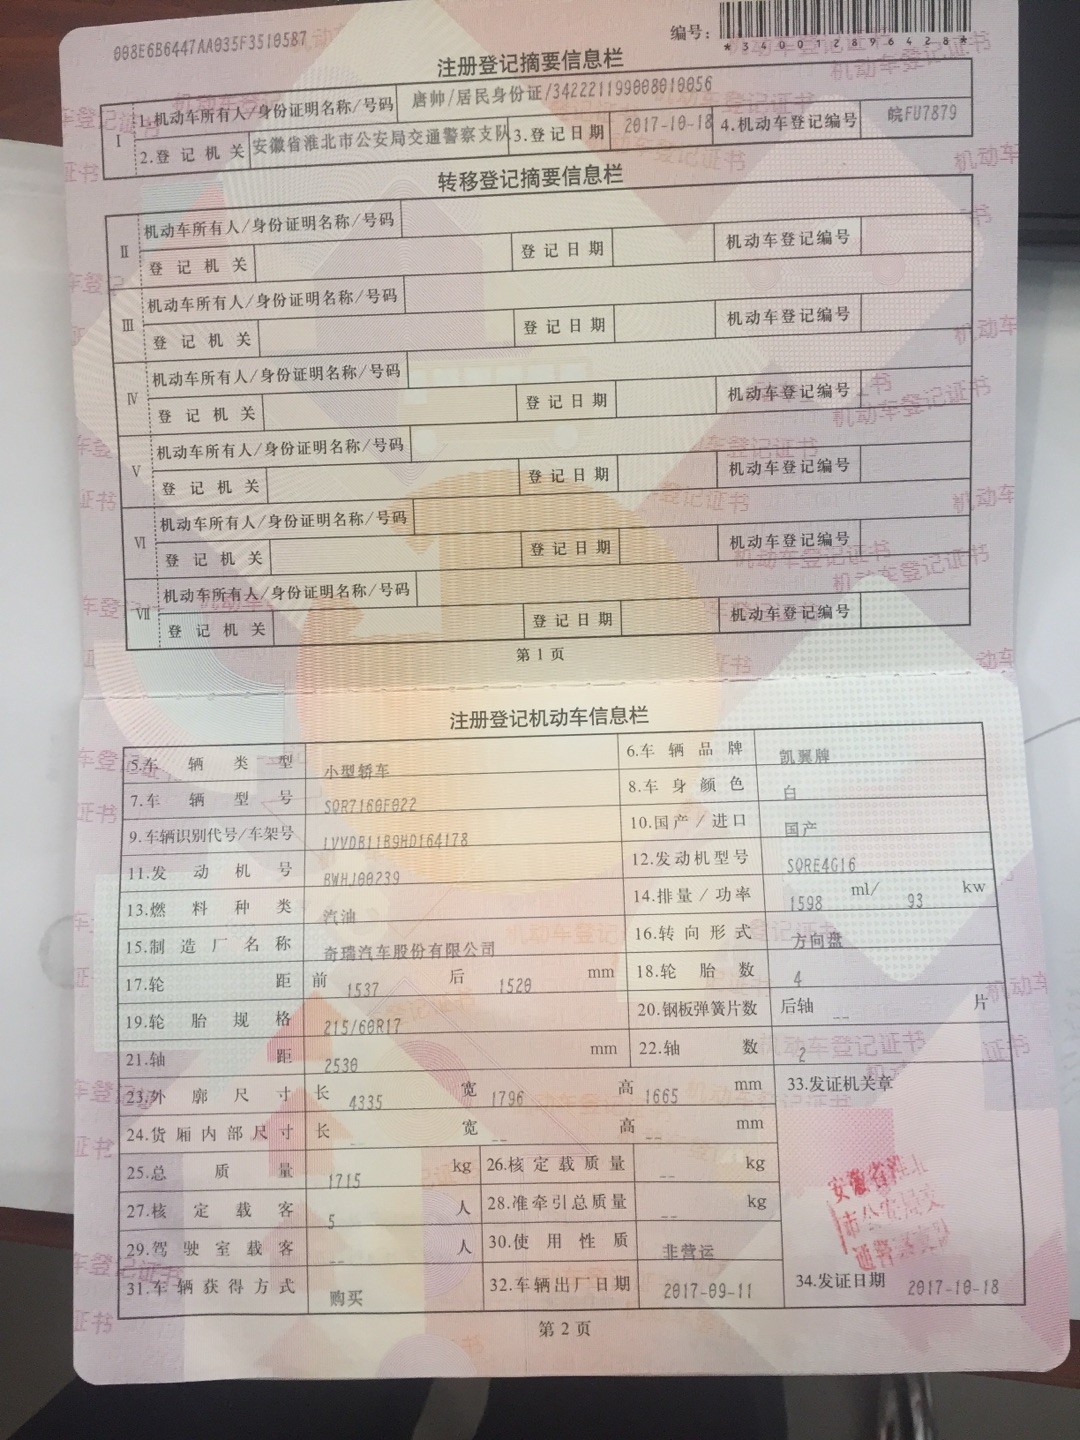 008E6B6447AA035F3510587
编号:
*340012896428*
注册登记摘要信息栏
Ⅰ 1.机动车所有人/身份证明名称/号码 唐帅/居民身份证/342221199008010056
2.登记机关 安徽省淮北市公安局交通警察支队 3.登记日期 2017-10-18 4.机动车登记编号 皖FU7879
转移登记摘要信息栏
Ⅱ 机动车所有人/身份证明名称/号码
登记机关 登记日期 机动车登记编号
Ⅲ 机动车所有人/身份证明名称/号码
登记机关 登记日期 机动车登记编号
Ⅳ 机动车所有人/身份证明名称/号码
登记机关 登记日期 机动车登记编号
Ⅴ 机动车所有人/身份证明名称/号码
登记机关 登记日期 机动车登记编号
Ⅵ 机动车所有人/身份证明名称/号码
登记机关 登记日期 机动车登记编号
Ⅶ 机动车所有人/身份证明名称/号码
登记机关 登记日期 机动车登记编号
第1页
注册登记机动车信息栏
5.车辆类型 小型轿车 6.车辆品牌 凯翼牌
7.车辆型号 SQR7160F022 8.车身颜色 白
9.车辆识别代号/车架号 LVVDB11B9HD164178 10.国产/进口 国产
11.发动机号 BWHJ00239 12.发动机型号 SQRE4G16
13.燃料种类 汽油 14.排量/功率 1598 ml/ 93 kw
15.制造厂名称 奇瑞汽车股份有限公司 16.转向形式 方向盘
17.轮距 前 1537 后 1520 mm 18.轮胎数 4
19.轮胎规格 215/60R17 20.钢板弹簧片数 后轴 -- 片
21.轴距 2530 mm 22.轴数 2
23.外廓尺寸 长 4335 宽 1796 高 1665 mm 33.发证机关章
24.货厢内部尺寸 长 -- 宽 -- 高 -- mm
25.总质量 1715 kg 26.核定载质量 -- kg
27.核定载客 5 人 28.准牵引总质量 -- kg
29.驾驶室载客 -- 人 30.使用性质 非营运
31.车辆获得方式 购买 32.车辆出厂日期 2017-09-11 34.发证日期 2017-10-18
安徽省淮北
市公安局交
通警察支队
第2页